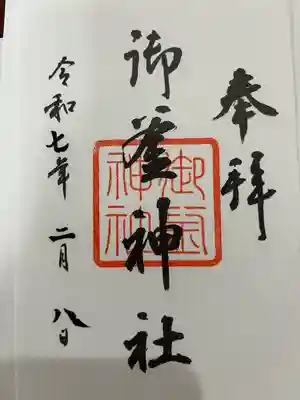 奉拝
御釜神社
御釜
神社
令和七年 二月 八日